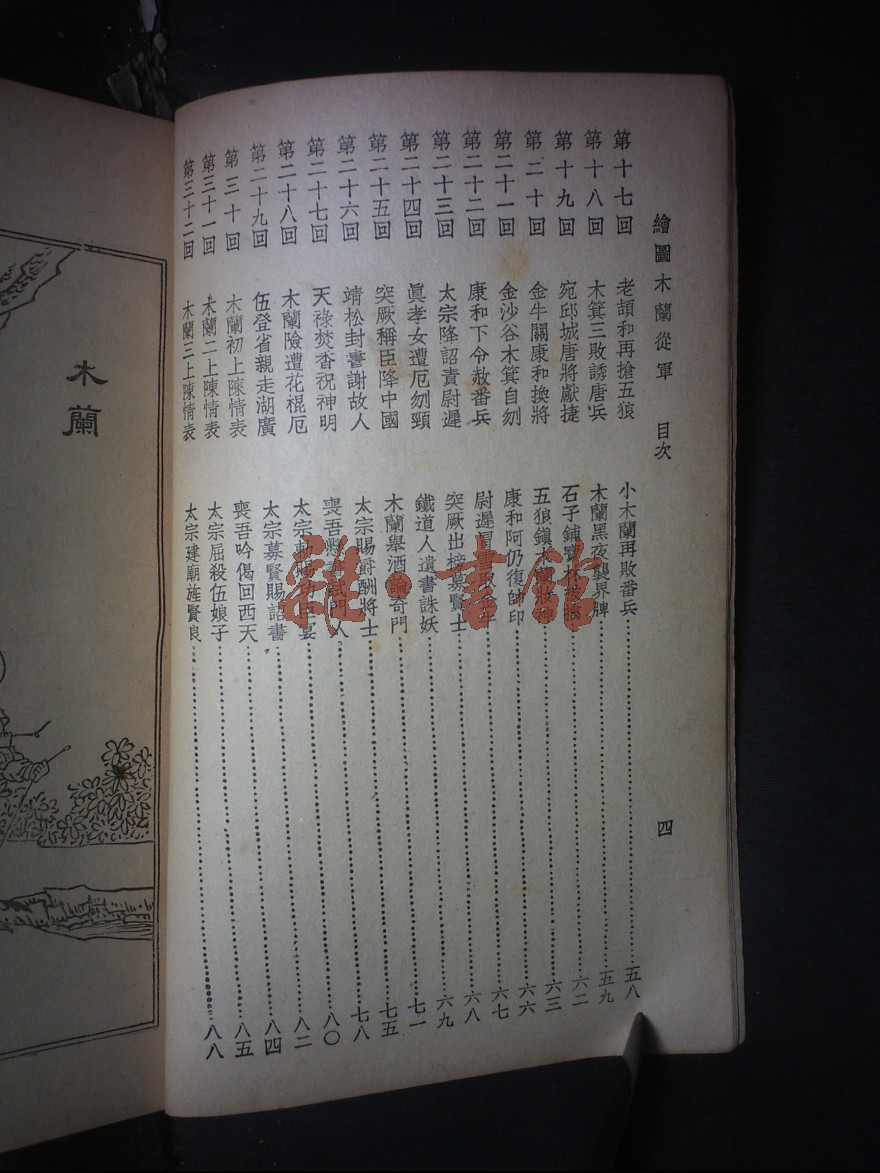 繪圖木蘭從軍 目次 四
第十七回 老頡和再搶五狼 小木蘭再敗番兵 五八
第十八回 木箕三敗誘唐兵 木蘭黑夜襲界牌 五九
第十九回 宛邱城唐將獻捷 石子鋪寶 六二
第二十回 金牛關康和換將 五狼鎮木 神 六三
第二十一回 金沙谷木箕自刎 康和阿仍復帥印 六六
第二十二回 康和下令赦番兵 尉遲 六七
第二十三回 太宗降詔責尉遲 突厥出榜募賢士 六八
第二十四回 眞孝女遭厄刎頸 鐵道人遺書誅妖 六九
第二十五回 突厥稱臣降中國 木蘭舉酒論奇門 七一
第二十六回 靖松封書謝故人 太宗賜爵酬將士 七五
第二十七回 天祿焚香祝神明 喪吾懸 試門人 七八
第二十八回 木蘭險遭花棍厄 太宗勅賜功臣宴 八〇
第二十九回 伍登省親走湖廣 太宗募賢賜詔書 八二
第三十回 木蘭初上陳情表 喪吾吟偈回西天 八四
第三十一回 木蘭二上陳情表 太宗屈殺伍娘子 八五
第三十二回 木蘭三上陳情表 太宗建廟旌賢良 八八
木蘭
雜·書館